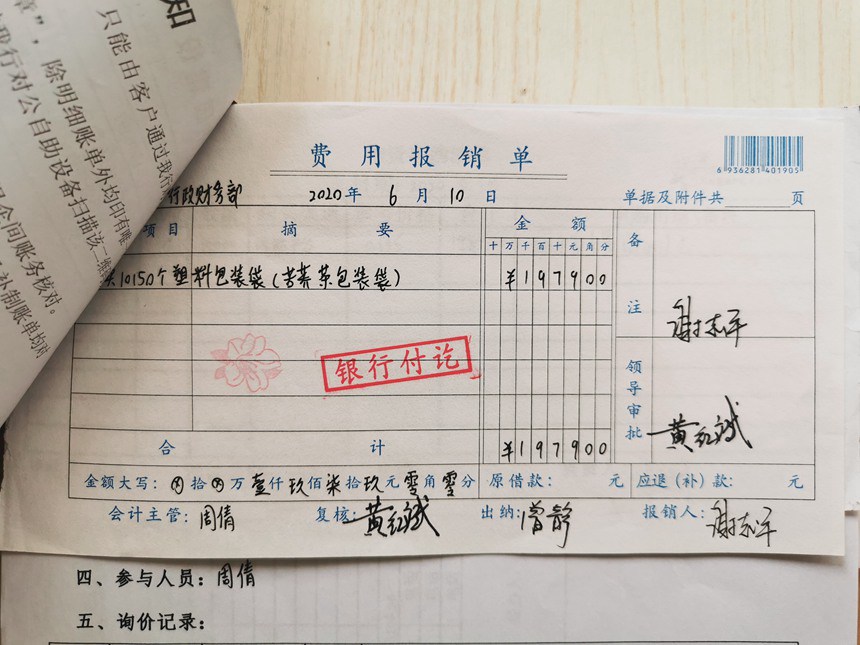 知
只能由客户通过我行
章”，除明细账单外均印有唯
我行对公自助设备扫描该二维
间账务核对。
补制账单均对
费用报销单
6 936281 401905
行政财务部 2020年 6月 10日 单据及附件共 页
项目 摘要 金额 备注
十万千百十元角分
10150个塑料包装袋(苦荞茶包装袋) ¥197900
谢志平
银行付讫
领导审批 黄红斌
合计 ¥197900
金额大写: ⊗拾⊗万壹仟玖佰柒拾玖元零角零分 原借款: 元 应退(补)款: 元
会计主管: 周倩 复核: 黄红斌 出纳: 曾静 报销人: 谢志平
四、参与人员: 周倩
五、询价记录: